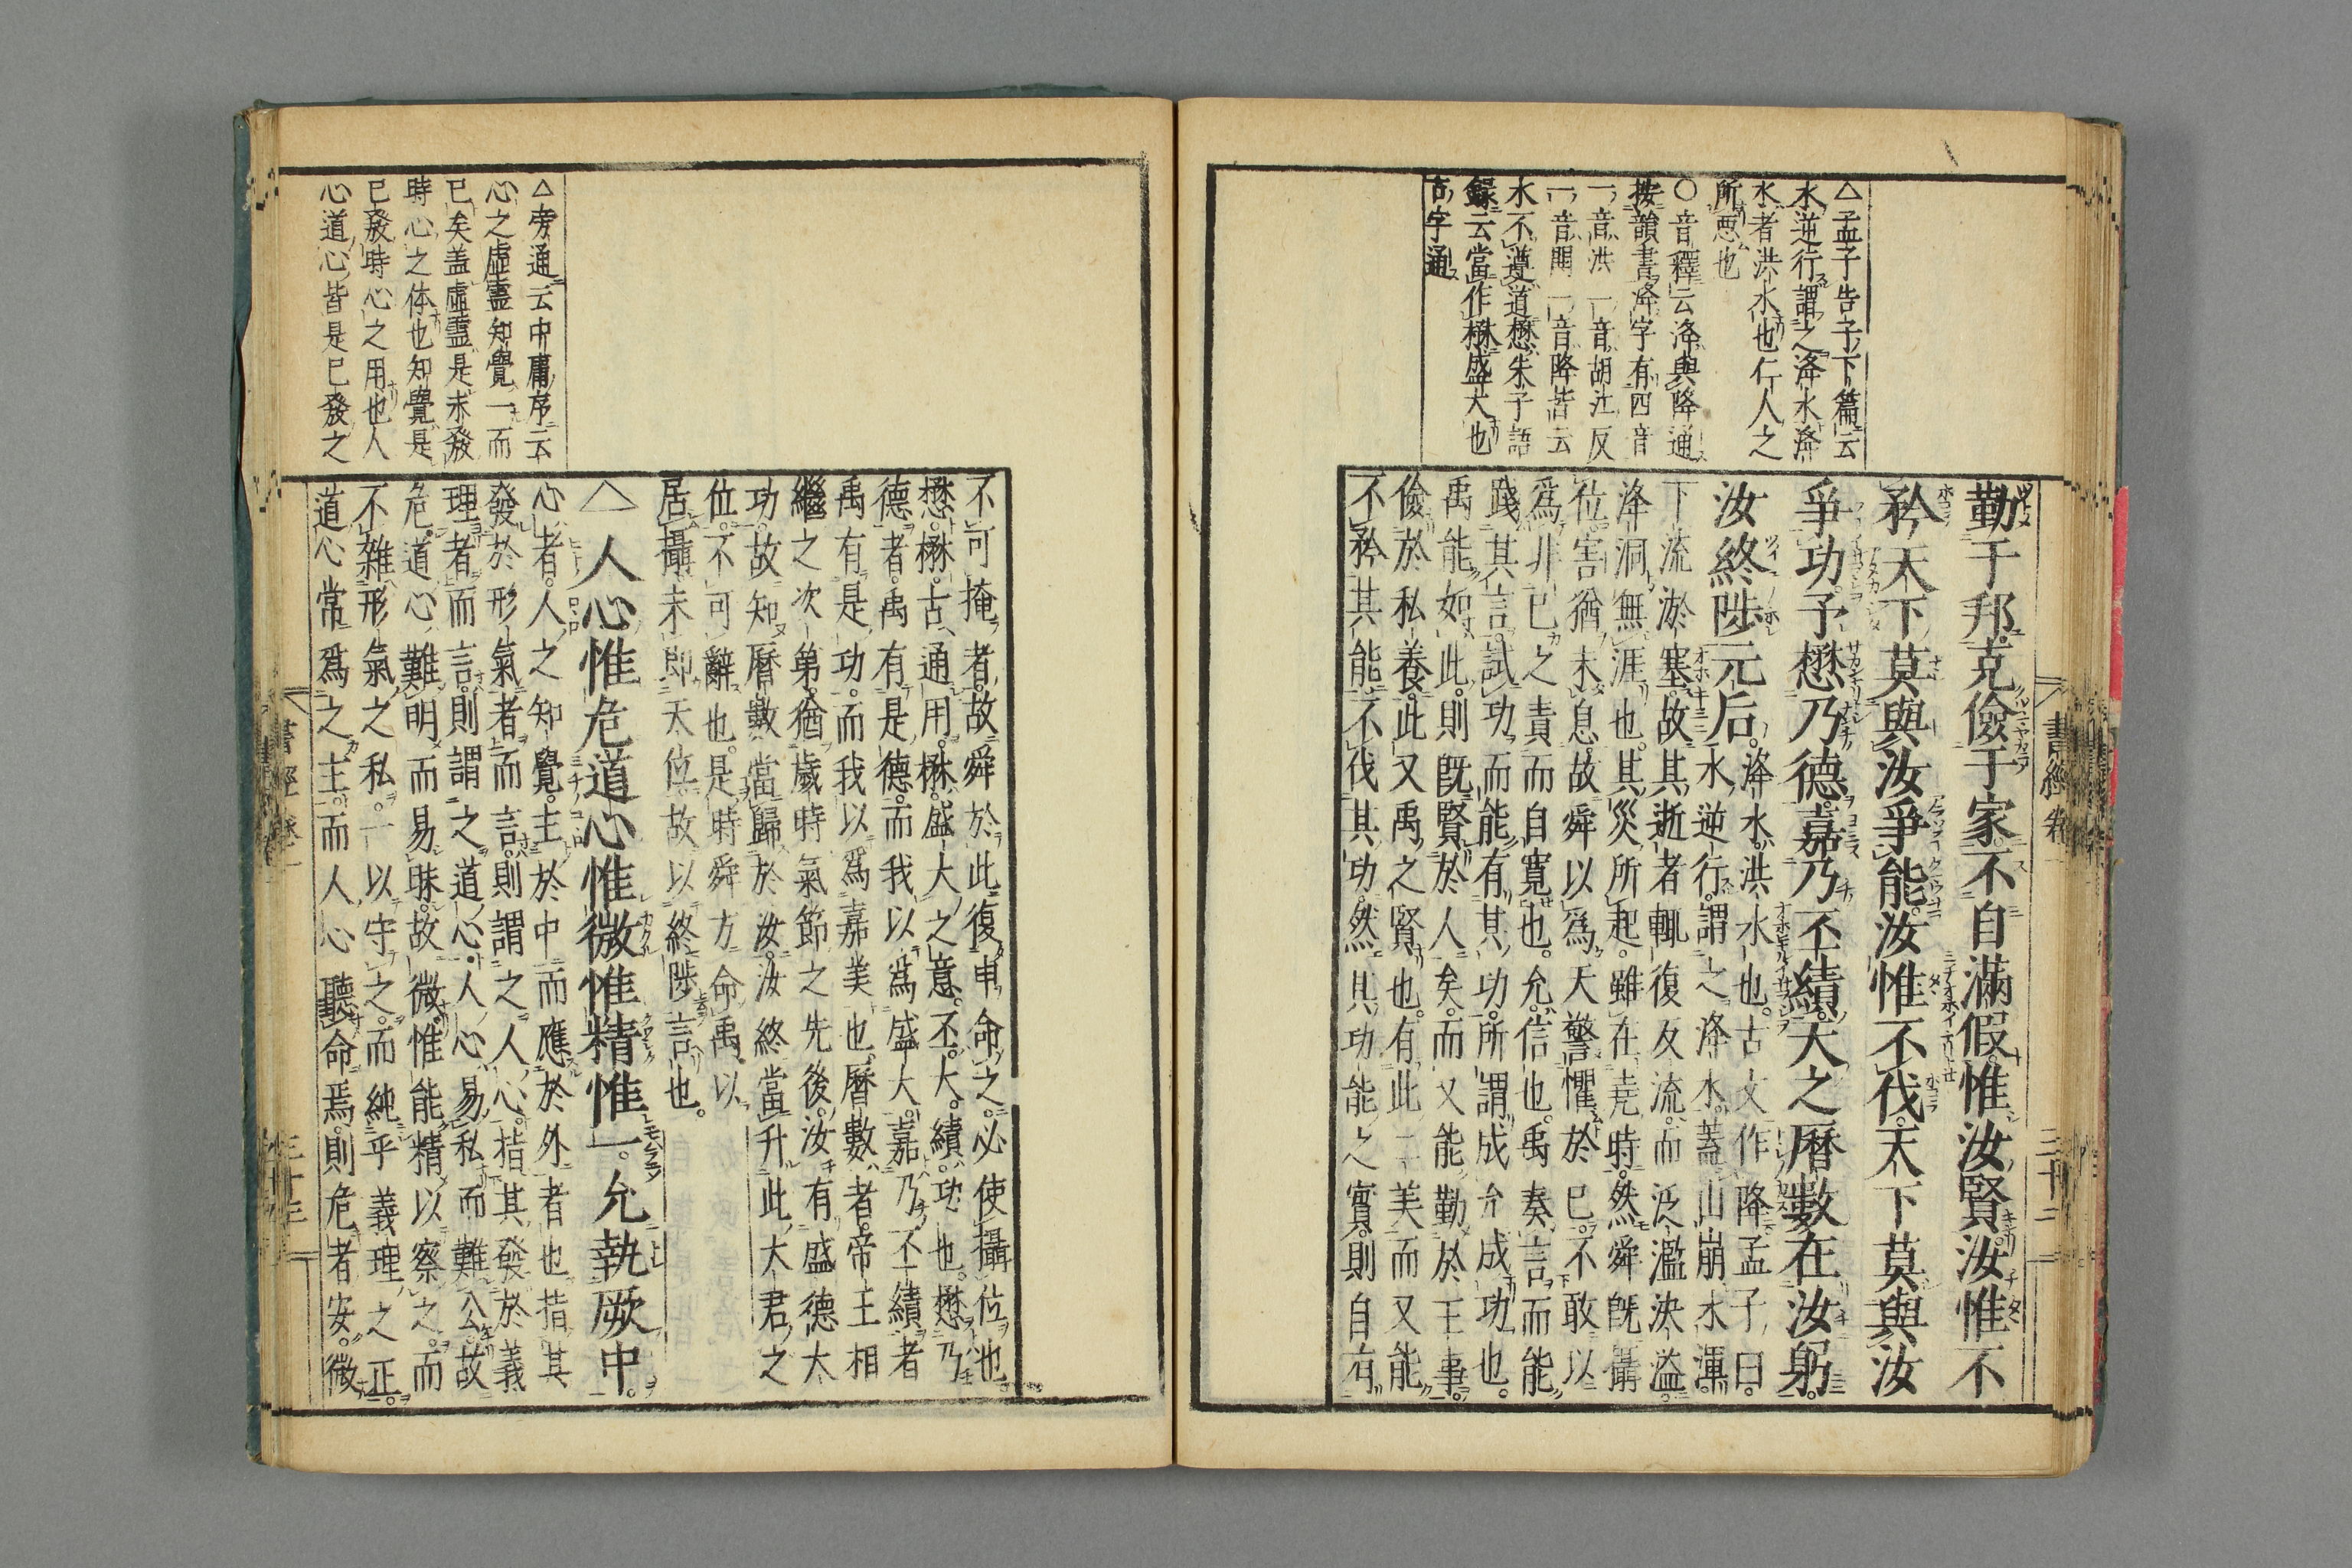 △孟子告子下篇云
水逆行謂之洚水洚
水者洪水也仁人之
所悪也
○音釋云洚與降通
按韻書洚字有四音
一音洪一音胡江反
一音閧一音降皆云
水不遵道懋朱子語
錄云當作楙盛大也
古字通
勤于邦克儉于家不自滿假惟汝賢汝惟不
矜天下莫與汝爭能汝惟不伐天下莫與汝
爭功予懋乃德嘉乃丕績天之曆數在汝躬
汝終陟元后。洚水洪水也。古文作降孟子曰
水逆行謂之洚水。蓋山崩水渾。
下流淤塞。故其逝者輒復反流。而泛濫決溢。
洚洞無涯也。其災所起。雖在堯時。然舜旣攝
位。害猶未息。故舜以爲天警懼於己。不敢以
爲非己之責而自寬也。允。信也。禹奏言而能
踐其言。試功而能有其功。所謂成允成功也。
禹能如此。則旣賢於人矣。而又能勤於王事。
儉於私養。此又禹之賢也。有此二美而又能
不矜其能不伐其功。然其功能之實。則自有
書經卷一
三十二
不可掩者。故舜於此復申命之。必使攝位也
懋。楙。古通用。楙。盛大之意。丕。大。績。功也。懋乃
德者。禹有是德。而我以爲盛大。嘉乃丕績者
禹有是功。而我以爲嘉美也。曆數者。帝王相
繼之次第。猶歲時氣節之先後。汝有盛德大
功。故知曆數當歸於汝。汝終當升此大君之
位。不可辭也。是時舜方命禹以
居攝未卽天位。故以終陟言也。
△人心惟危道心惟微惟精惟一。允執厥中。
心者。人之知覺。主於中而應於外者也指其
發於形氣者而言。則謂之人心。指其發於義
理者而言。則謂之道心。人心易私而難公。故
危。道心難明而易昧。故微。惟能精以察之。而
不雜形氣之私。一以守之。而純乎義理之正。
道心常爲之主。而人心聽命焉。則危者安。微
△旁通云中庸序云
心之虛靈知覺一而
已矣盖虛靈是未發
時心之体也知覺是
已發時心之用也人
心道心皆是已發之
書經卷一
三十三